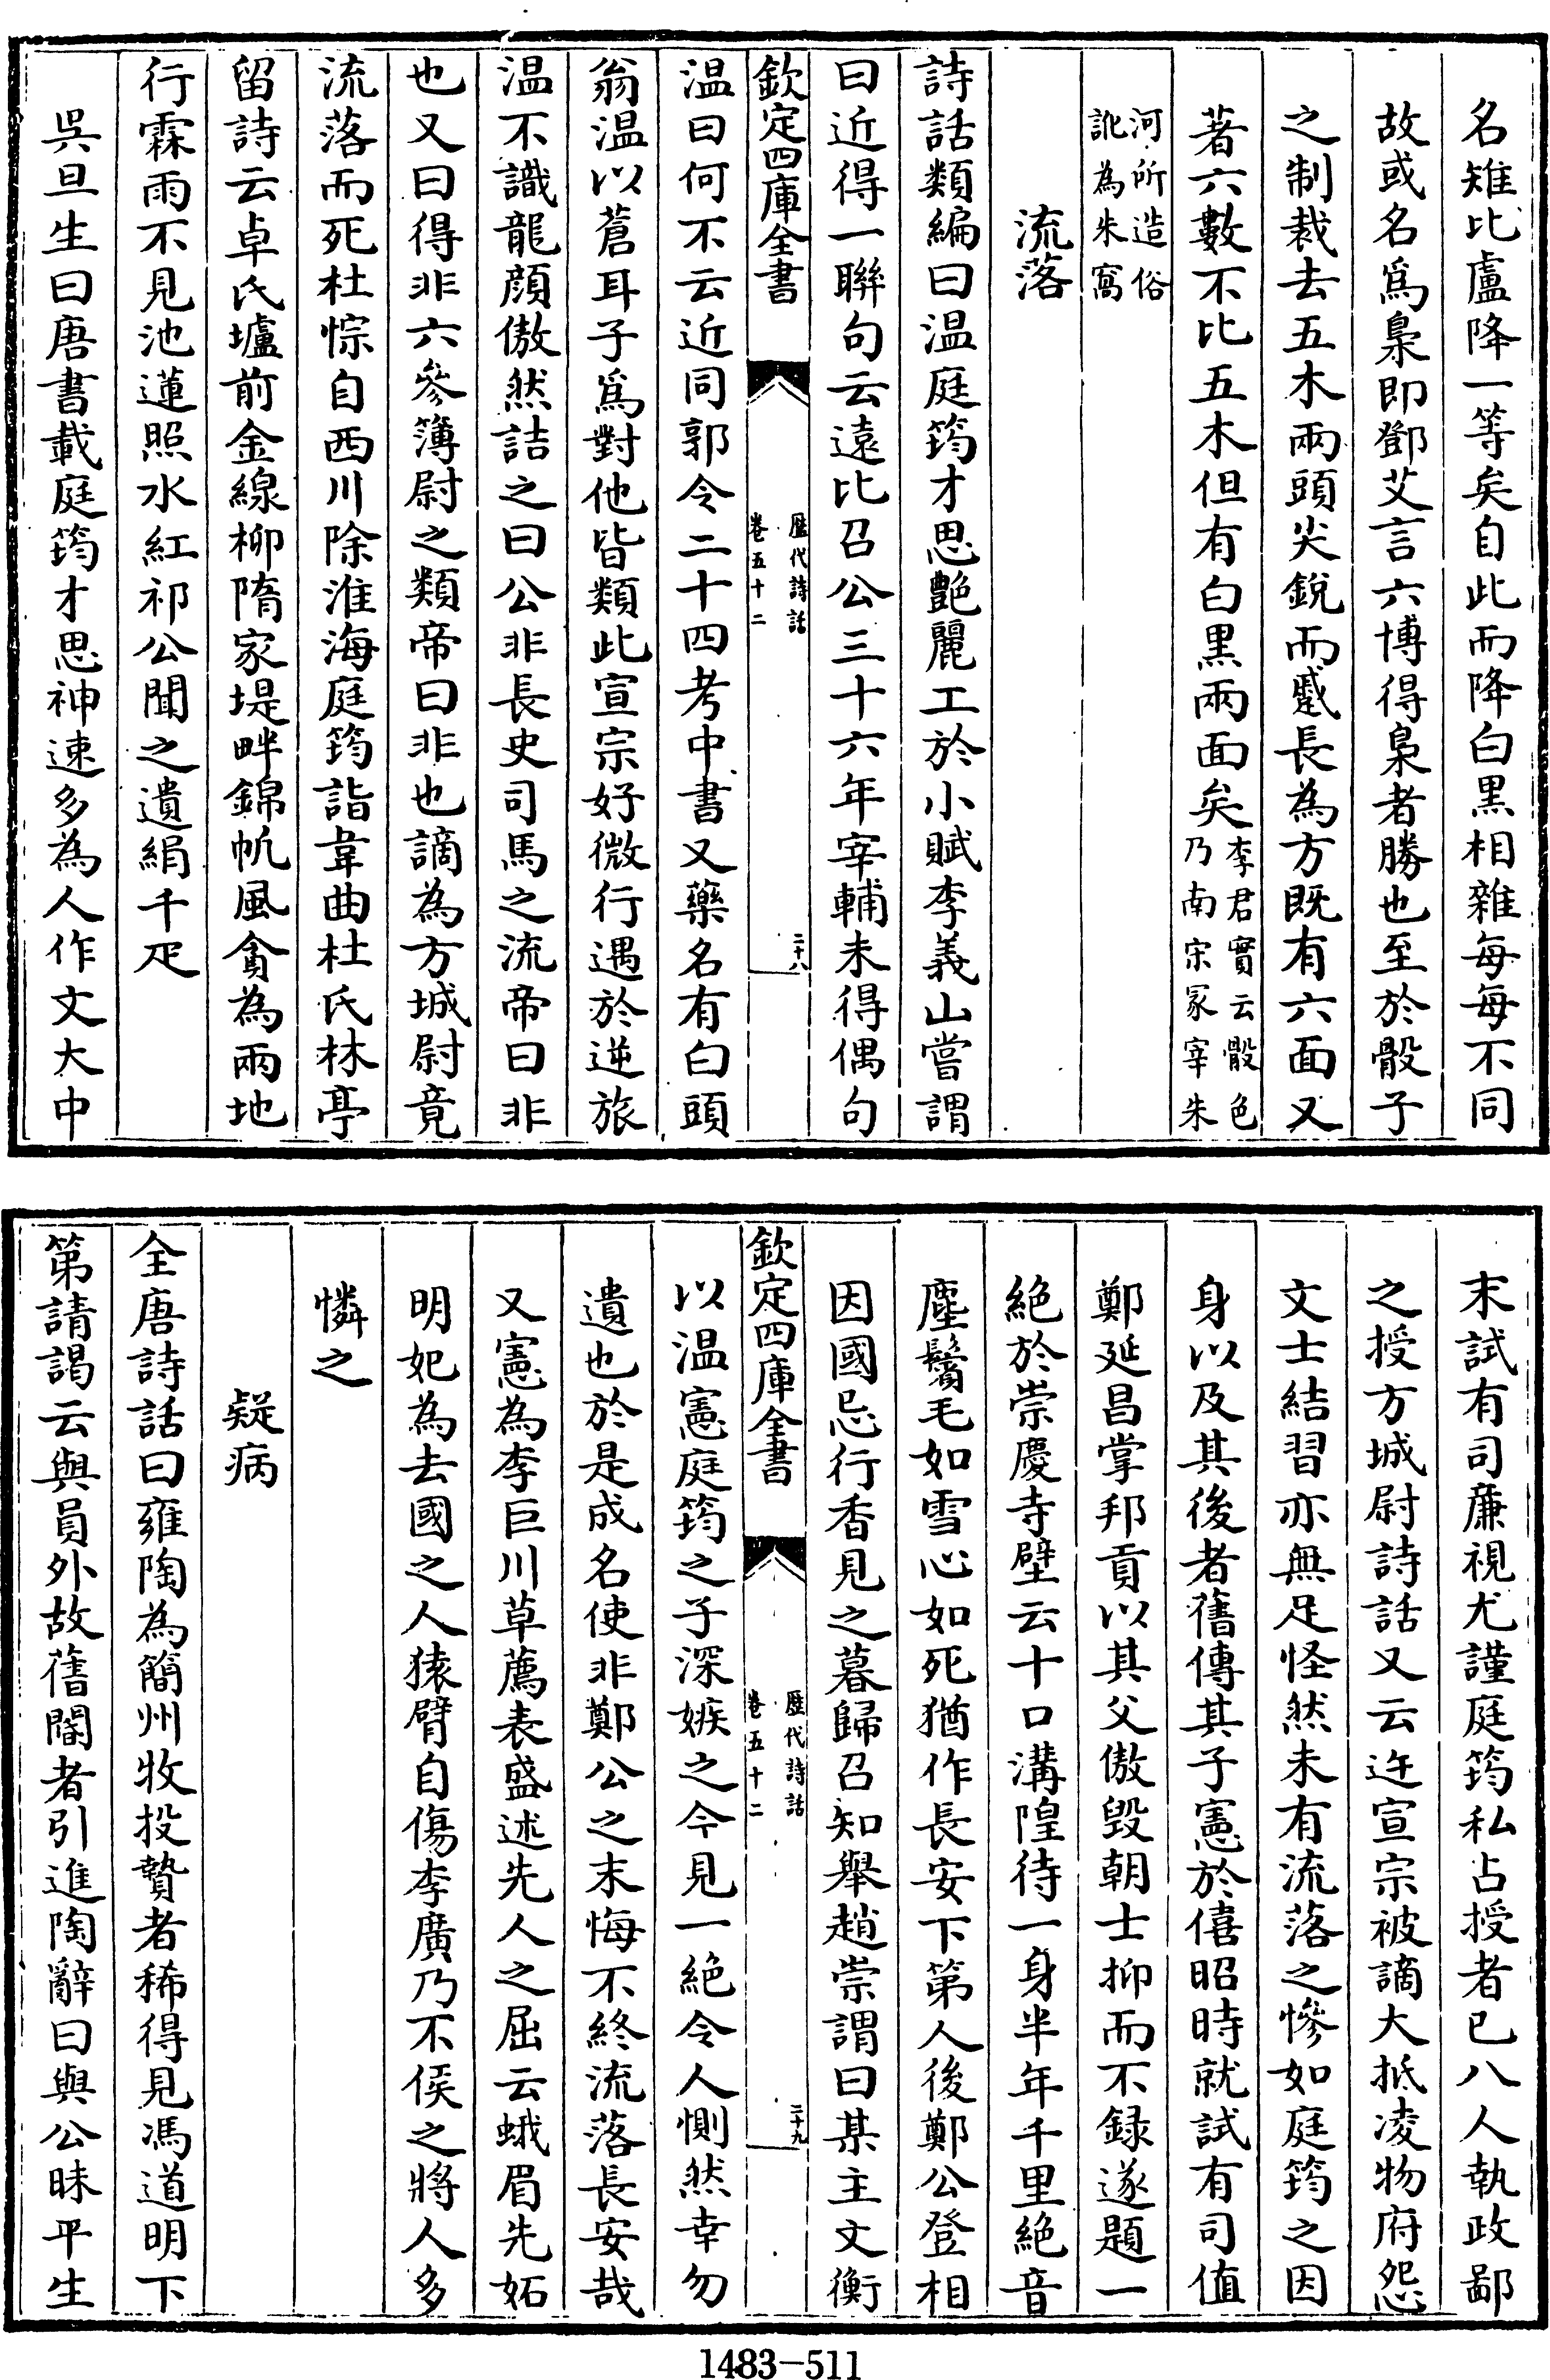 名雉比盧降一等矣自此而降白黒相雜每每不同
故或名爲梟即鄧艾言六博得梟者勝也至於骰子
之制裁去五木兩頭尖銳而蹙長為方既有六面又
著六數不比五木但有白黒兩面矣李君實云骰色乃南宋冡宰朱
河所造俗訛為朱窩
流落
詩話類編曰温庭筠才思艶麗工於小賦李義山嘗謂
曰近得一聨句云遠比召公三十六年宰輔未得偶句
欽定四庫全書
歴代詩話
卷五十二
二十八
温曰何不云近同郭令二十四考中書又藥名有白頭
翁温以蒼耳子爲對他皆類此宣宗好微行遇於逆旅
温不識龍顔傲然詰之曰公非長史司馬之流帝曰非
也又曰得非六參簿尉之類帝曰非也謫為方城尉竟
流落而死杜悰自西川除淮海庭筠詣韋曲杜氏林亭
留詩云卓氏壚前金線柳隋家堤畔錦帆風貪為兩地
行霖雨不見池蓮照水紅祁公聞之遺絹千疋
吳旦生曰唐書載庭筠才思神速多為人作文大中
末試有司廉視尤謹庭筠私占授者已八人執政鄙
之授方城尉詩話又云迕宣宗被謫大抵凌物府怨
文士結習亦無足怪然未有流落之慘如庭筠之因
身以及其後者舊傳其子憲於僖昭時就試有司值
鄭延昌掌邦貢以其父傲毀朝士抑而不録遂題一
絶於崇慶寺壁云十口溝隍待一身半年千里絶音
塵鬢毛如雪心如死猶作長安下第人後鄭公登相
因國忌行香見之暮歸召知舉趙崇謂曰某主文衡
欽定四庫全書
歴代詩話
卷五十二
二十九
以温憲庭筠之子深嫉之今見一絶令人惻然幸勿
遺也於是成名使非鄭公之末悔不終流落長安哉
又憲為李巨川草薦表盛述先人之屈云蛾眉先妬
明妃為去國之人猿臂自傷李廣乃不侯之將人多
憐之
疑病
全唐詩話曰雍陶為簡州牧投贄者稀得見馮道明下
第請謁云與員外故舊閽者引進陶辭曰與公昧平生
1483-511